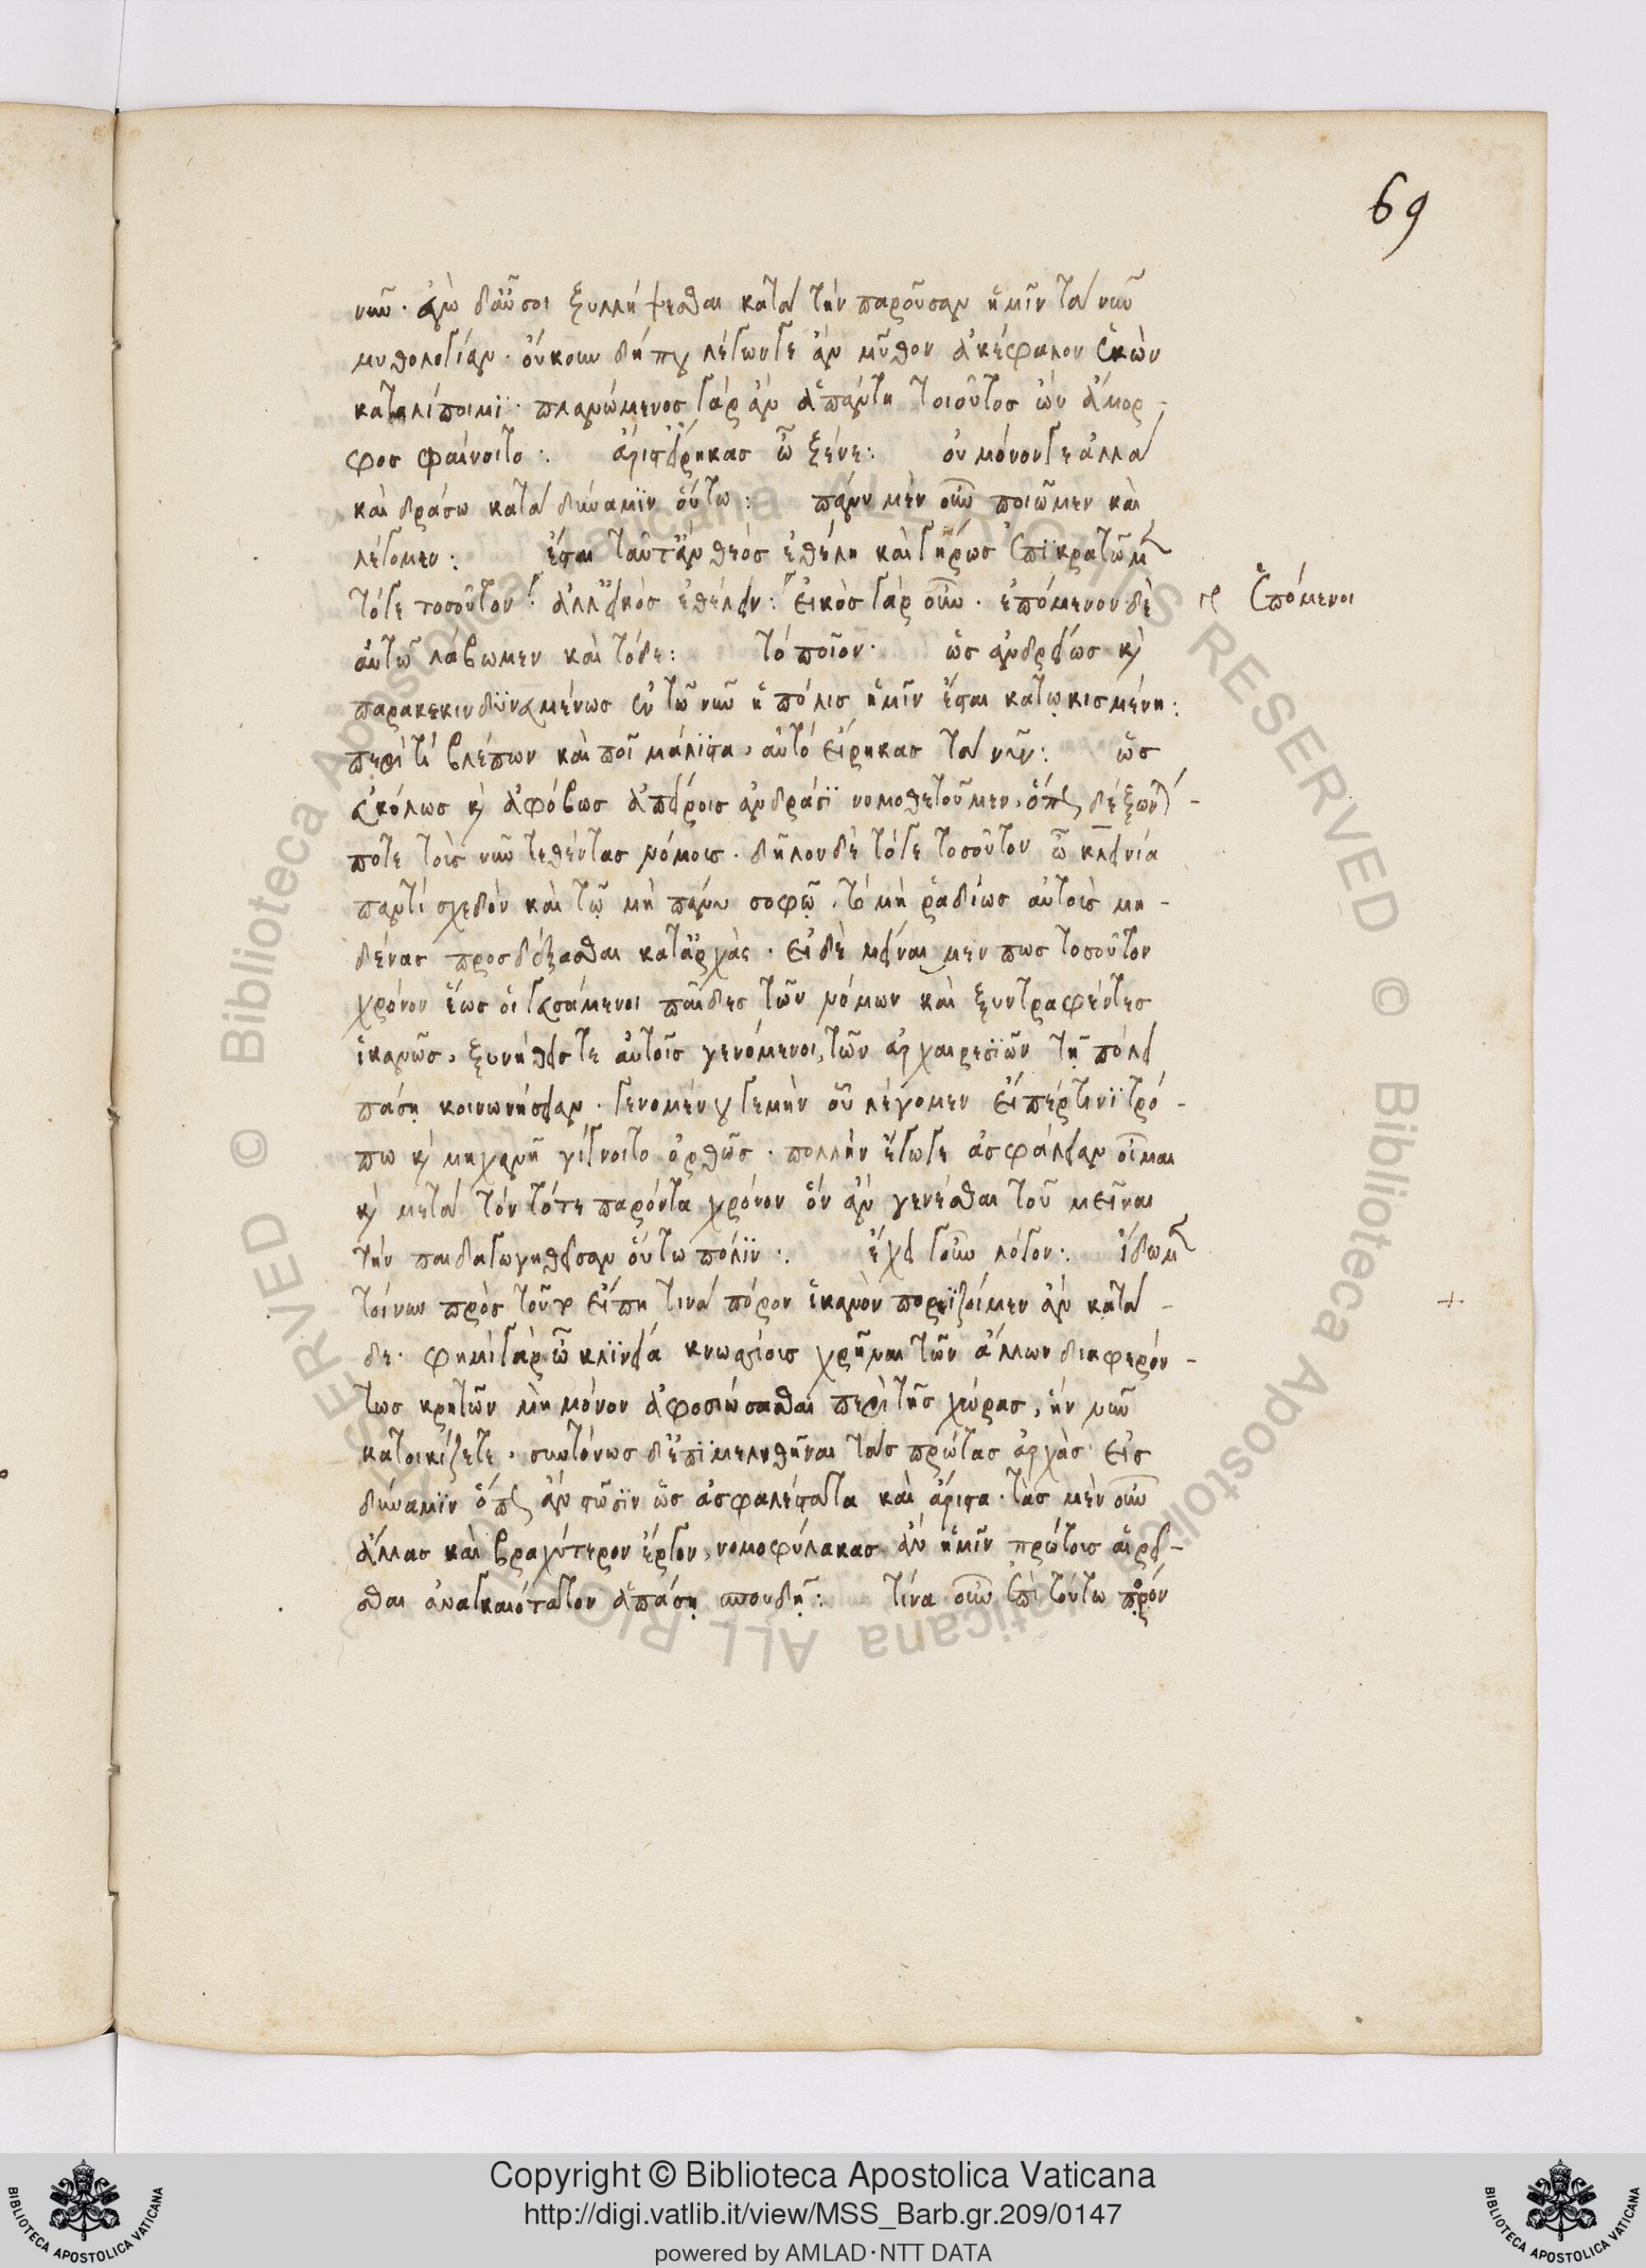 69
νῦν. ἐγὼ δ' αὖ σοι ξυλλήψεσθαι κατὰ τὴν παροῦσαν ἡμῖν τὰ νῦν
μυθολογίαν. οὔκουν δήπου λέγων γε ἂν μῦθον ἀκέφαλον ἑκὼν
καταλίποιμι. πλανώμενος γὰρ ἂν ἁπάντη τοιοῦτος ὢν ἄμορ-
φος φαίνοιτο: ἄριστ' εἴρηκας ὦ ξένε: οὐ μόνον γε ἀλλὰ
καὶ δράσω κατὰ δύναμιν οὕτω: πάνυ μὲν οὖν ποιῶμεν καὶ
λέγομεν: ἔσται ταῦτ' ἂν θεὸς ἐθέλη καὶ γήρως ἐπικρατῶμεν
τό γε τοσοῦτον: ἀλλ' εἰκὸς ἐθέλειν: εἰκὸς γὰρ οὖν. ἑπόμενον δὲ
ἑπόμενοι
αὐτῶ λάβωμεν καὶ τόδε: τὸ ποῖον. ὡς ἀνδρείως καὶ
παρακεκινδυνευμένως ἐν τῶ νῦν ἡ πόλις ἡμῖν ἔσται κατῳκισμένη:
περὶ τί βλέπων καὶ ποῖ μάλιστα, αὐτὸ εἴρηκας τὰ νῦν: ὡς
εὐκόλως καὶ ἀφόβως ἀπείροις ἀνδράσι νομοθετοῦμεν, ὅπως δέξωνταί
ποτε τοὺς νῦν τεθέντας νόμους. δῆλον δὲ τό γε τοσοῦτον ὦ κλεινία
παντὶ σχεδὸν καὶ τῷ μὴ πάνυ σοφῷ. τὸ μὴ ῥαδίως αὐτοὺς μη-
δένας προσδέξασθαι κατ' ἀρχὰς. εἰ δὲ μείναιμέν πως τοσοῦτον
χρόνον ἕως οἱ γευσάμενοι παῖδες τῶν νόμων καὶ ξυντραφέντες
ἱκανῶς, ξυνήθεις τε αὐτοῖς γενόμενοι, τῶν ἀρχαιρεσιῶν τῇ πόλει
πάσῃ κοινωνήσειαν. γενομένου γε μὴν οὗ λέγομεν εἴπέρ τινι τρό-
πω καὶ μηχανῆ γίγνοιτο ὀρθῶς. πολλὴν ἔγωγε ἀσφάλειαν οἶμαι
καὶ μετὰ τὸν τότε παρόντα χρόνον ὃν ἂν γενέσθαι τοῦ μεῖναι
τὴν παιδαγωγηθεῖσαν οὕτω πόλιν: ἔχει γοῦν λόγον: ἴδωμεν
τοίνυν πρὸς τοῦτ' εἴ πη τινὰ πόρον ἱκανὸν πορίζοιμεν ἂν κατὰ
δε. φημὶ γὰρ ὦ κλινεία κνωσίοις χρῆναι τῶν ἄλλων διαφερόν-
τως κρητῶν μὴ μόνον ἀφοσιώσασθαι περὶ τῆς χώρας, ἣν νῦν
κατοικίζετε, συντόνως δ' ἐπιμεληθῆναι τὰς πρώτας ἀρχὰς εἰς
δύναμιν ὅπως ἂν στῶσιν ὡς ἀσφαλέστατα καὶ ἄριστα. τὰς μὲν οὖν
ἄλλας καὶ βραχύτερον ἔργον, νομοφύλακας δ' ἂν ἡμῖν πρώτους αἱρεῖ-
σθαι ἀναγκαιότατον ἁπάσῃ σπουδῇ: τίνα οὖν ἐπὶ τούτω πόρον
Copyright © Biblioteca Apostolica Vaticana
http://digi.vatlib.it/view/MSS_Barb.gr.209/0147
powered by AMLAD·NTT DATA